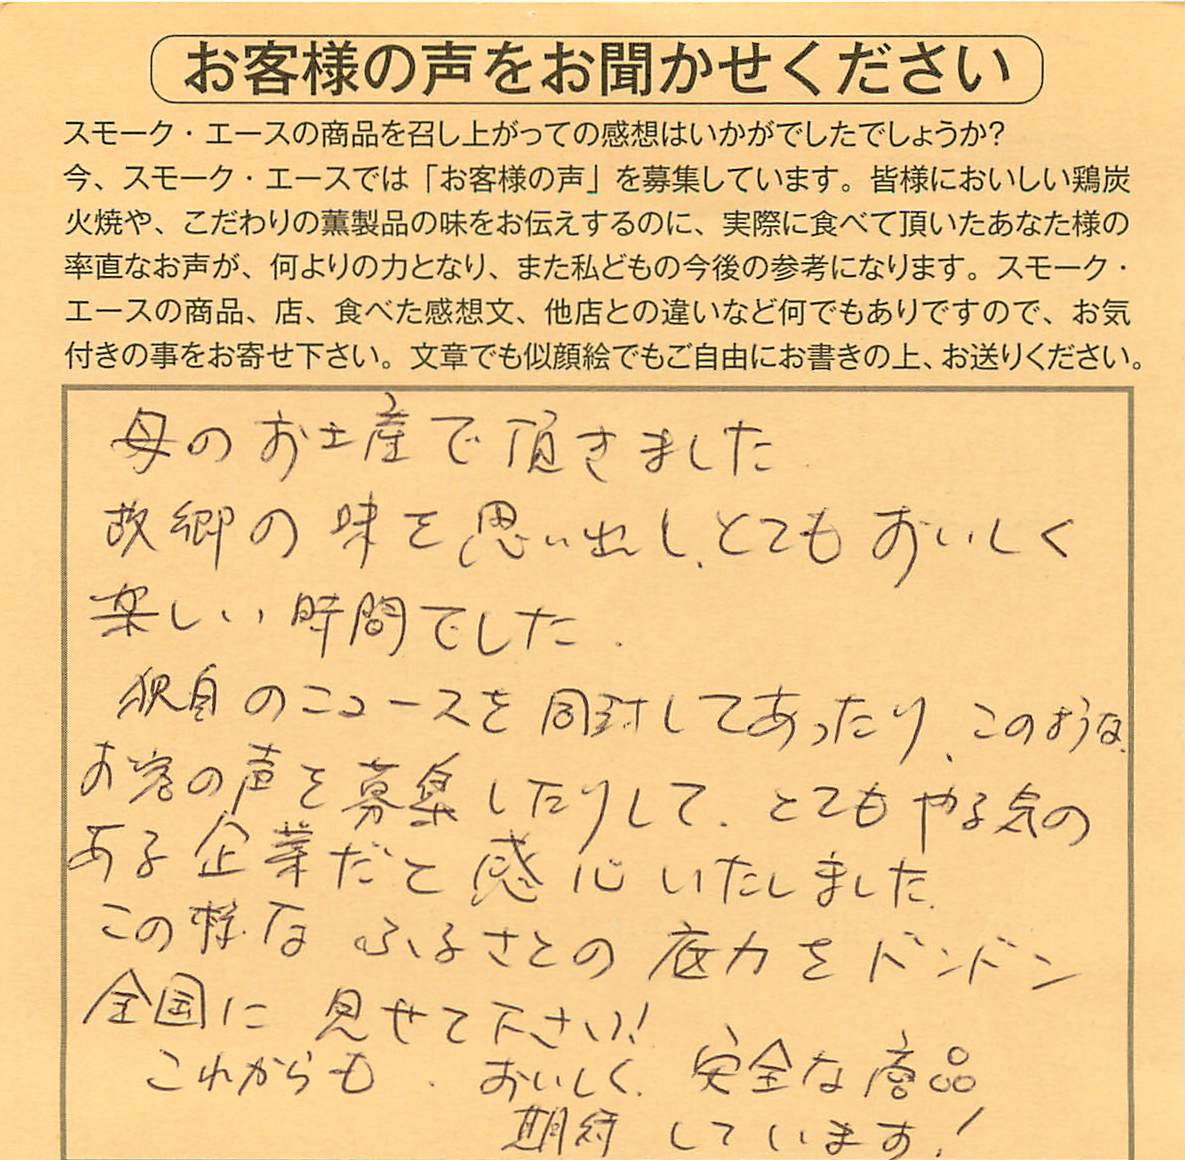 お客様の声をお聞かせください
スモーク・エースの商品を召し上がっての感想はいかがでしたでしょうか?
今、スモーク・エースでは「お客様の声」を募集しています。皆様においしい鶏炭
火焼や、こだわりの薫製品の味をお伝えするのに、実際に食べて頂いたあなた様の
率直なお声が、何よりの力となり、また私どもの今後の参考になります。スモーク・
エースの商品、店、食べた感想文、他店との違いなど何でもありですので、お気
付きの事をお寄せ下さい。文章でも似顔絵でもご自由にお書きの上、お送りください。
母のお土産で頂きました.
故郷の味を思い出し、とてもおいしく
楽しい時間でした.
独自のニュースを同封してあったり、このような、
お客の声を募集したりして、とてもやる気の
ある企業だと感心いたしました.
この様な ふるさとの底力をドンドン
全国に 見せて下さい!
これからも、おいしく、安全な商品
期待しています!